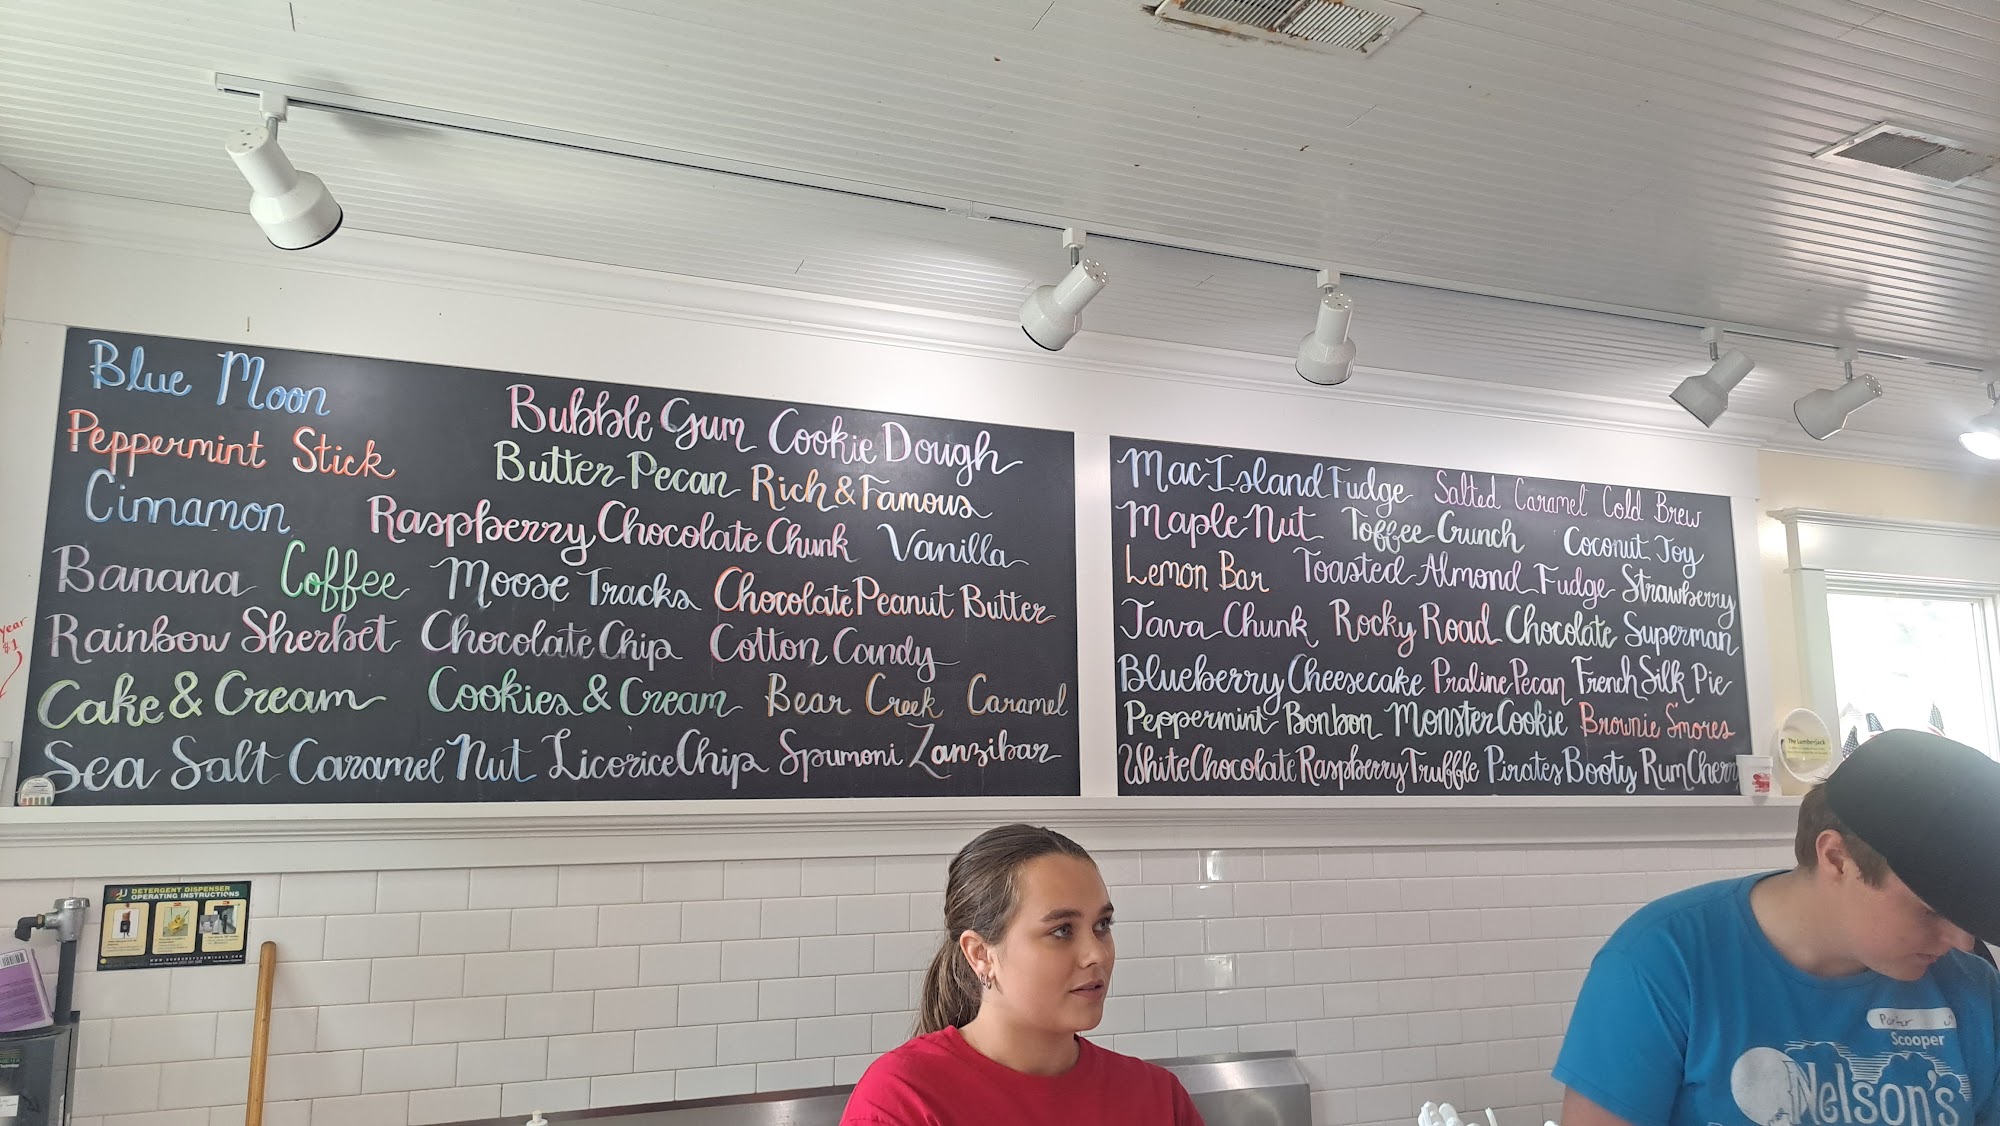 Blue Moon
Bubble Gum Cookie Dough
Peppermint Stick
Butter Pecan Rich & Famous
Cinnamon Raspberry Chocolate Chunk Vanilla
Banana Coffee Moose Tracks Chocolate Peanut Butter
Rainbow Sherbet Chocolate Chip Cotton Candy
Cake & Cream Cookies & Cream Bear Creek Caramel
Sea Salt Caramel Nut Licorice Chip Spumoni Zanzibar
Mac Island Fudge Salted Caramel Cold Brew
Maple Nut Toffee Crunch Coconut Joy
Lemon Bar Toasted Almond Fudge Strawberry
Java Chunk Rocky Road Chocolate Superman
Blueberry Cheesecake Praline Pecan French Silk Pie
Peppermint Bonbon Monster Cookie Brownie S'mores
White Chocolate Raspberry Truffle Pirates Booty Rum Cherr
year
$1
The Lumberjack
DETERGENT DISPENSER
OPERATING INSTRUCTIONS
Porter
Scooper
Nelson's